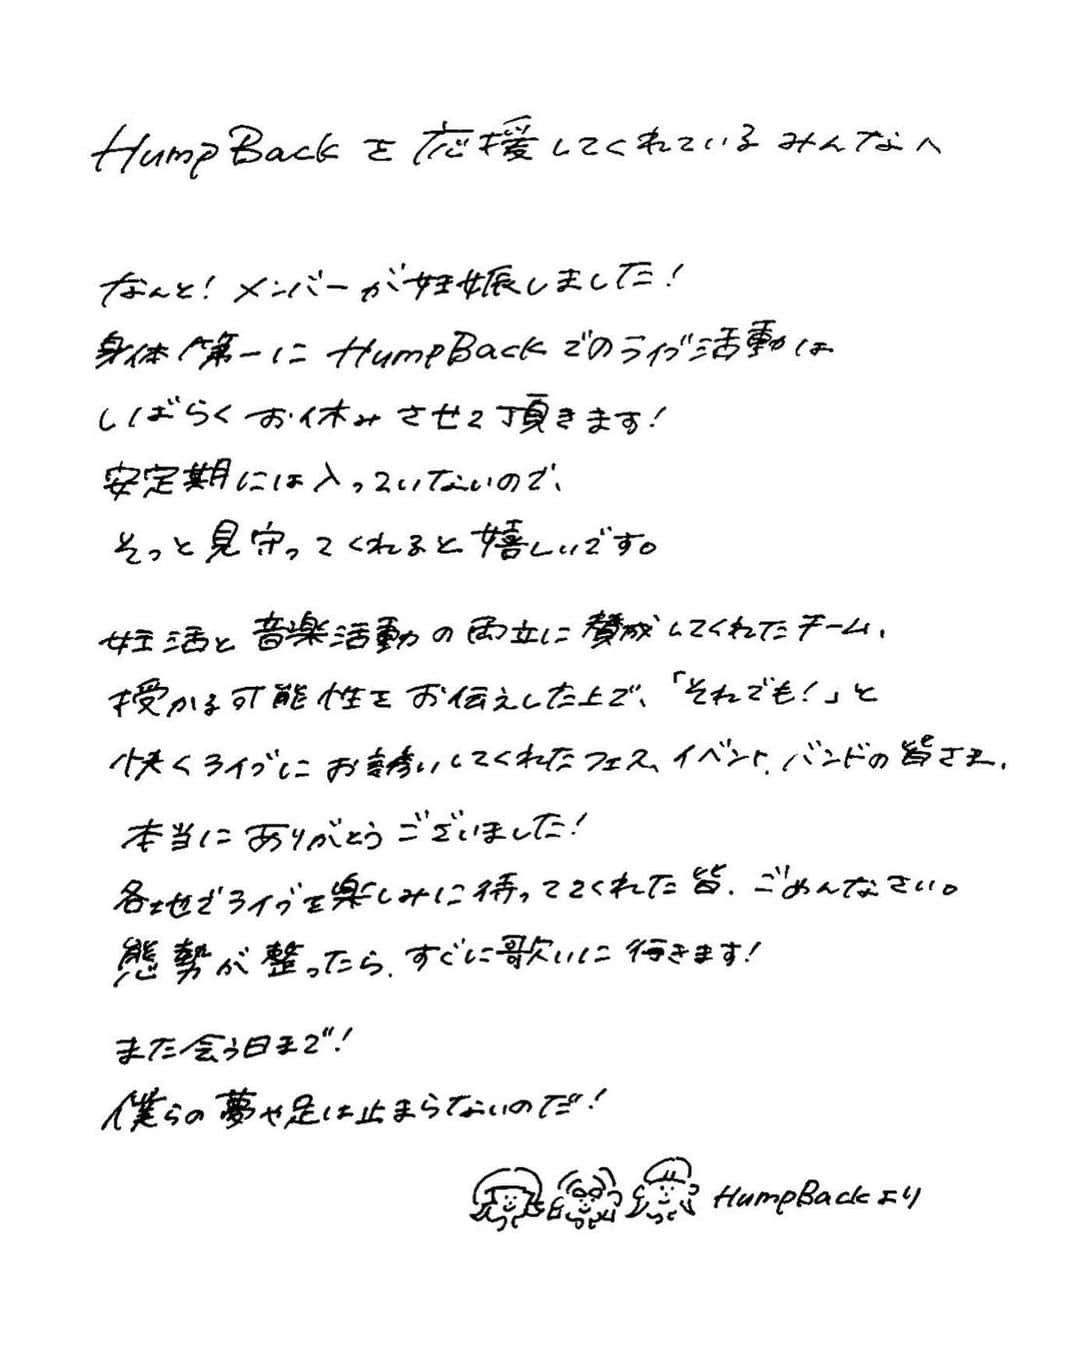 Hump Backを応援してくれているみんなへ
なんと！メンバーが妊娠しました！
身体第一にHump Backでのライブ活動は
しばらくお休みさせて頂きます！
安定期には入っていないので、
そっと見守ってくれると嬉しいです。
妊活と音楽活動の両立に賛成してくれたチーム、
授かる可能性をお伝えした上で、「それでも！」と
快くライブにお誘いしてくれたフェス、イベント、バンドの皆さま、
本当にありがとうございました！
各地でライブを楽しみに待っててくれた皆、ごめんなさい。
態勢が整ったら、すぐに歌いに行きます！
また会う日まで！
僕らの夢や足は止まらないのだ！
Hump Backより